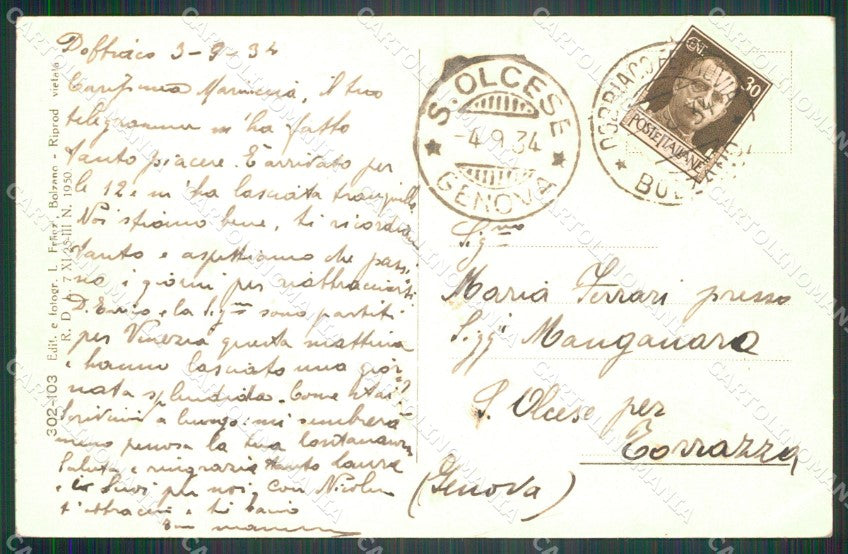 Dobbiaco 3-9-34
Carissima Mammina, il tuo
telegramma m'ha fatto
tanto piacere. È arrivato per
le 12 e m'ha lasciata tranquilla
Noi stiamo bene, ti ricordiamo
tanto e aspettiamo che passi
no i giorni per riabbracciarti
D. Enrico e la Sig.na sono partiti
per Venezia questa mattina
e hanno lasciato una gior
nata splendida. Come stai?
Scrivimi a lungo: mi sembrerà
meno penosa la tua lontananza
Saluta e ringrazia tanto Laura
e scrivi per noi, con
t'abbracci e ti bacio
302-103 Edit. e fotogr. L. Bolzano - Riprod. vietata
R. D. 7 XI 25-III N. 1950.
S. OLCESE
-4.9.34
GENOVA
DOBBIACO
BOLZANO
30
POSTE ITALIANE
Maria Ferrari presso
Manganaro
S. Olcese per
Torrazza
(Genova)
CARTOLINOMANIA